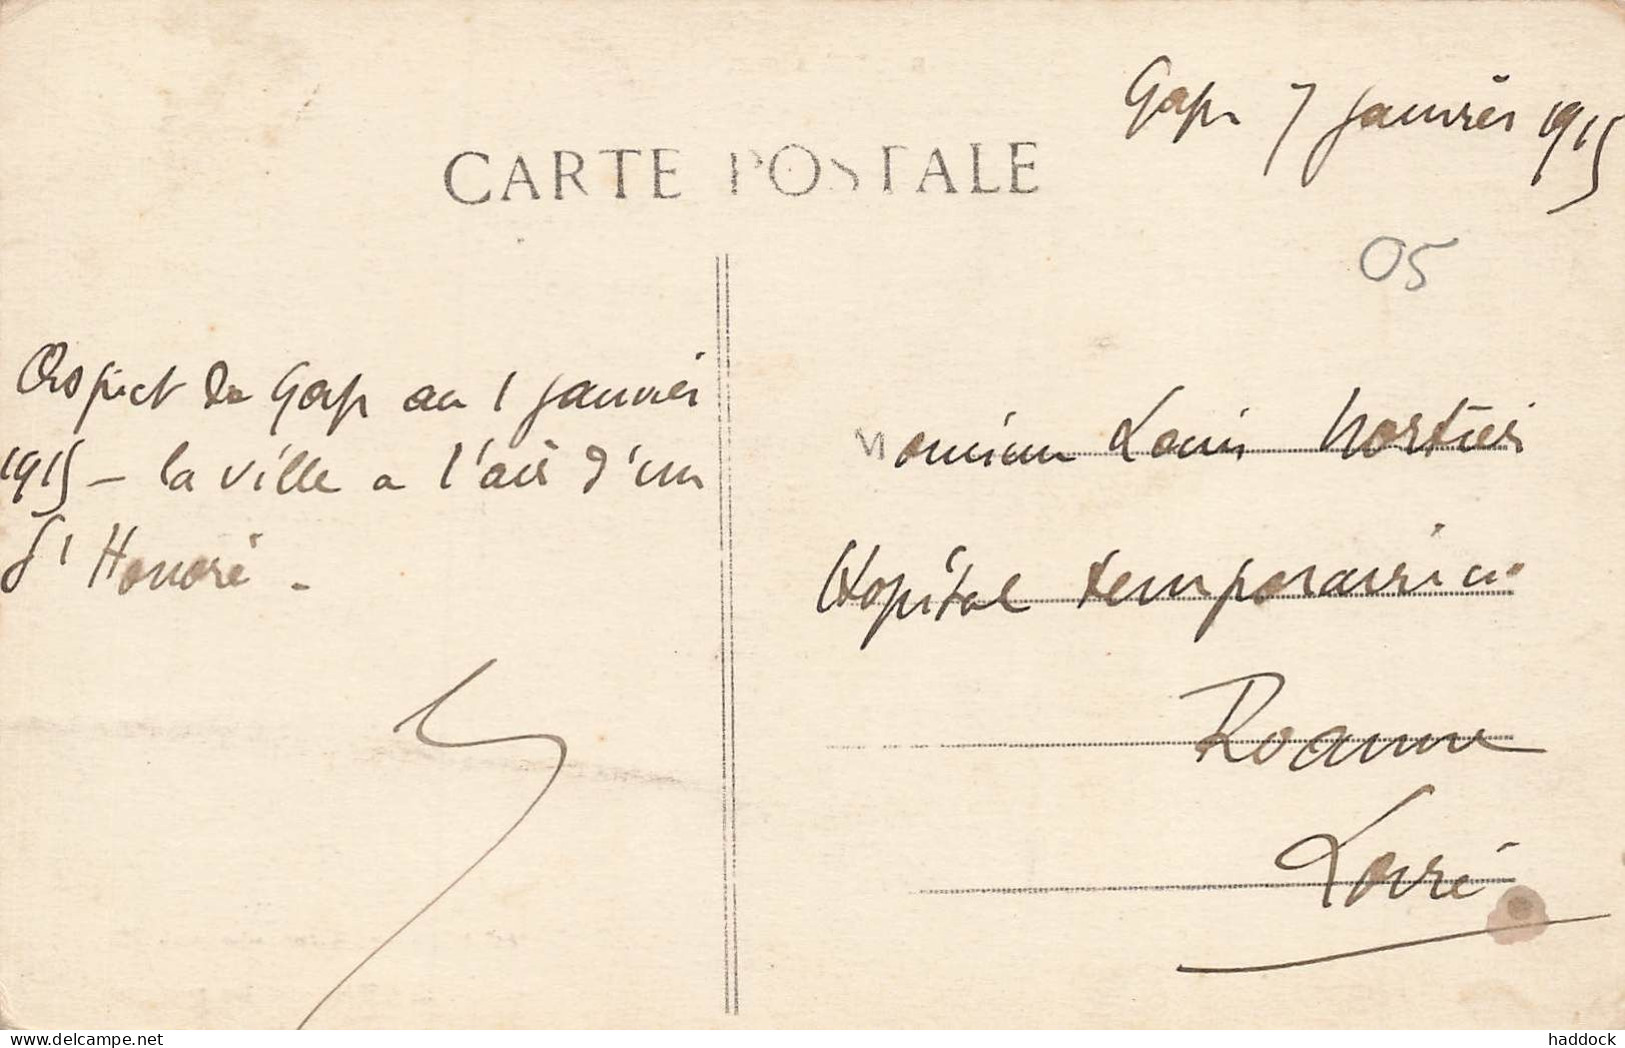 Gap 7 janvier 1915
CARTE POSTALE
05
Aspect de Gap au 1 janvier
1915 - la ville a l'air d'un
St Honoré -
Monsieur Louis Mortier
Hopital temporaire
Roanne
Loire
www.delcampe.net
haddock